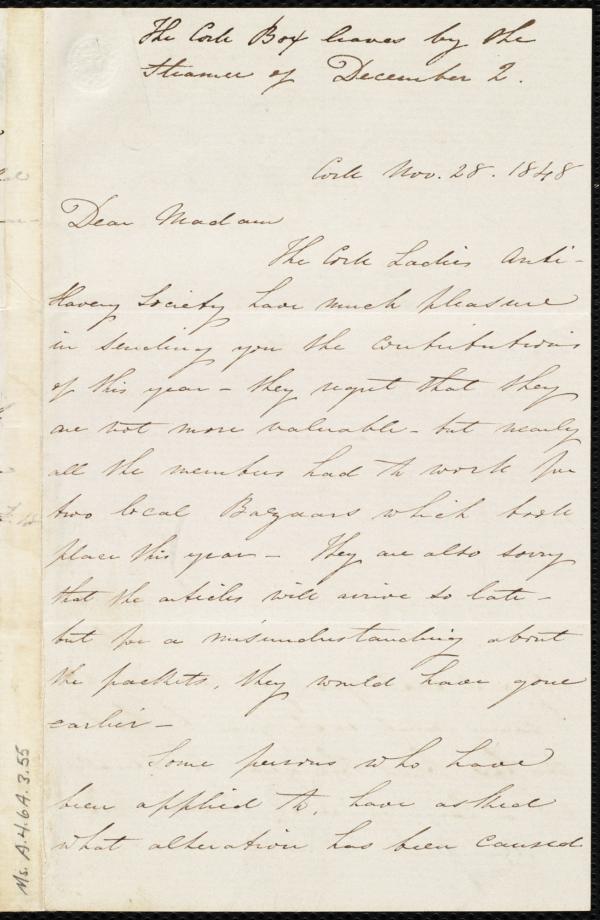 The Cork Box leaves by the
Steamer of December 2.
Cork Nov. 28. 1848
Dear Madam
The Cork Ladies Anti-
Slavery Society have much pleasure
in sending you the contributions
of this year - they regret that they
are not more valuable - but nearly
all the members had to work for
two local Bazaars which took
place this year - They are also sorry
that the articles will arrive so late -
but for a misunderstanding about
the packets, they would have gone
earlier -
Some persons who have
been applied to, have asked
what alteration has been caused
Ms. A.4.6A.3.55